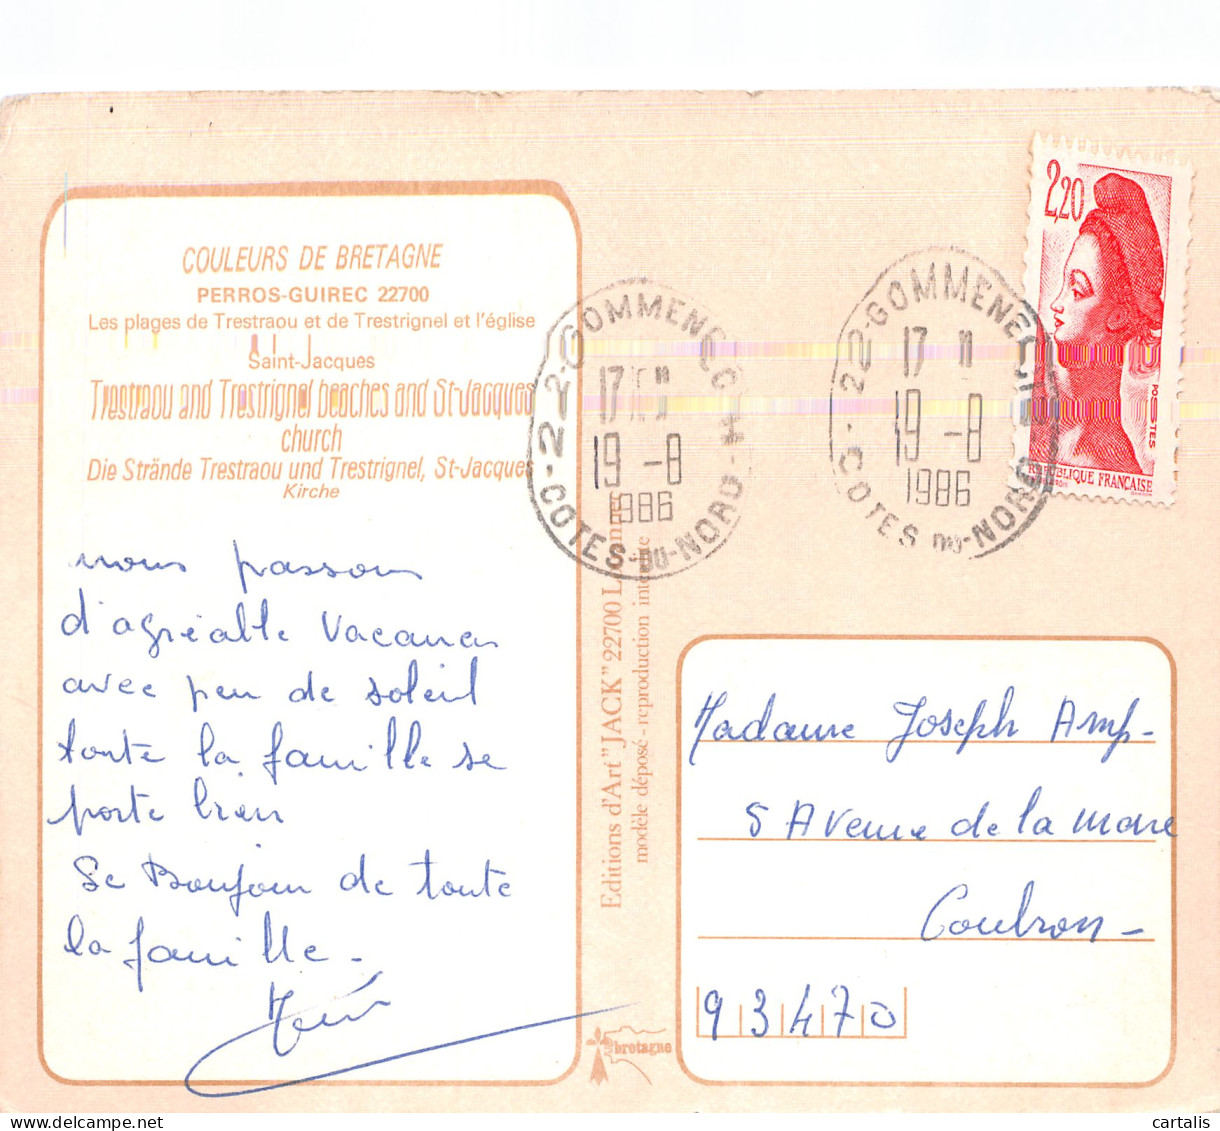 COULEURS DE BRETAGNE
PERROS-GUIREC 22700
Les plages de Trestraou et de Trestrignel et l'église
Saint-Jacques
Trestraou and Trestrignel beaches and St-Jacques
church
Die Strände Trestraou und Trestrignel, St-Jacques
Kirche
nous passons
d'agréable vacances
avec peu de soleil
toute la famille se
porte bien
Le Bonjour de toute
la famille.
Editions d'Art "JACK" 22700
modèle déposé - reproduction
bretagne
22-GOMMENEC'H
17 H
19 -8
1986
COTES-DU-NORD
22-GOMMENEC'H
17 H
19 -8
1986
COTES DU-NORD
2,20
POSTES
REPUBLIQUE FRANÇAISE
Madame Joseph Amp-
5 Avenue de la mare
Coubron -
93470
© www.cartalis.fr